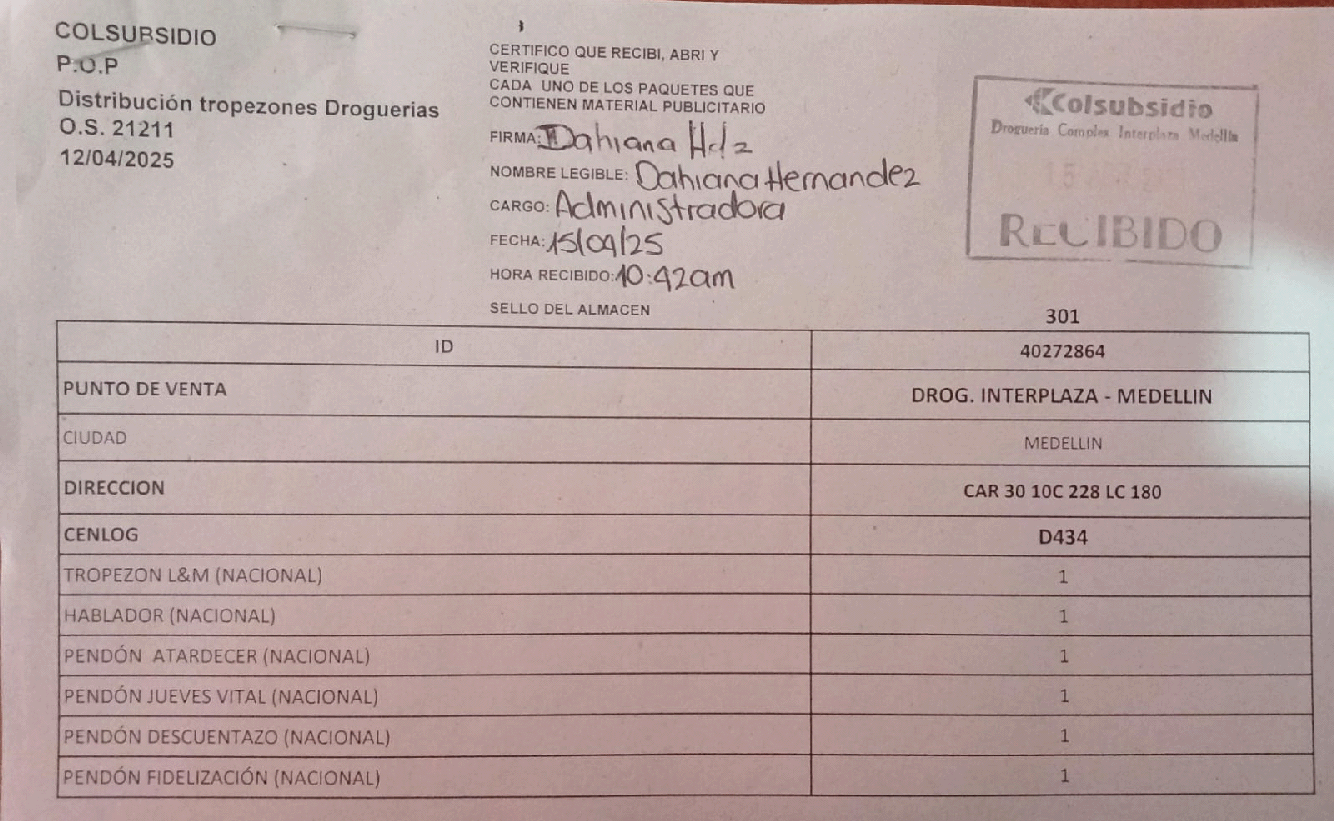 COLSUBSIDIO
P.O.P
Distribución tropezones Droguerias
O.S. 21211
12/04/2025
CERTIFICO QUE RECIBI, ABRI Y
VERIFIQUE
CADA UNO DE LOS PAQUETES QUE
CONTIENEN MATERIAL PUBLICITARIO
FIRMA: Dahiana Hdz
NOMBRE LEGIBLE: Dahiana Hernandez
CARGO: Administradora
FECHA: 15/04/25
HORA RECIBIDO: 10:42am
SELLO DEL ALMACEN
Colsubsidio
Droguería Complex Interplaza Medellín
15
RECIBIDO
301
ID 40272864
PUNTO DE VENTA DROG. INTERPLAZA - MEDELLIN
CIUDAD MEDELLIN
DIRECCION CAR 30 10C 228 LC 180
CENLOG D434
TROPEZON L&M (NACIONAL) 1
HABLADOR (NACIONAL) 1
PENDÓN ATARDECER (NACIONAL) 1
PENDÓN JUEVES VITAL (NACIONAL) 1
PENDÓN DESCUENTAZO (NACIONAL) 1
PENDÓN FIDELIZACIÓN (NACIONAL) 1